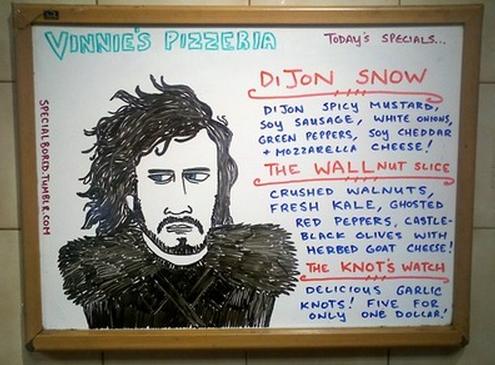 VINNIE'S PIZZERIA
TODAY'S SPECIALS...
SPECIALBORED.TUMBLR.COM
DIJON SNOW
DIJON SPICY MUSTARD,
SOY SAUSAGE, WHITE ONIONS,
GREEN PEPPERS, SOY CHEDDAR
+ MOZZARELLA CHEESE!
THE WALLNUT SLICE
CRUSHED WALNUTS,
FRESH KALE, GHOSTED
RED PEPPERS, CASTLE-
BLACK OLIVES WITH
HERBED GOAT CHEESE!
THE KNOT'S WATCH
DELICIOUS GARLIC
KNOTS! FIVE FOR
ONLY ONE DOLLAR!